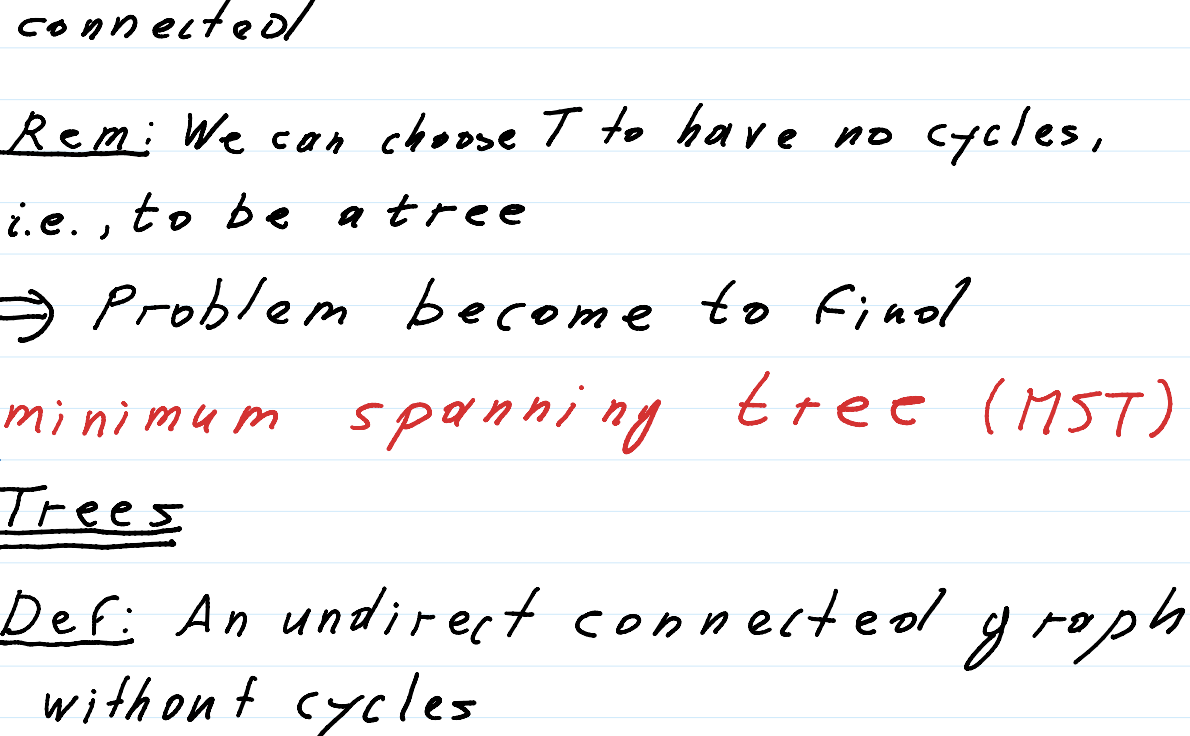 connected
Rem: We can choose T to have no cycles,
i.e., to be a tree
⇒ Problem become to find
minimum spanning tree (MST)
Trees
Def: An undirect connected graph
without cycles